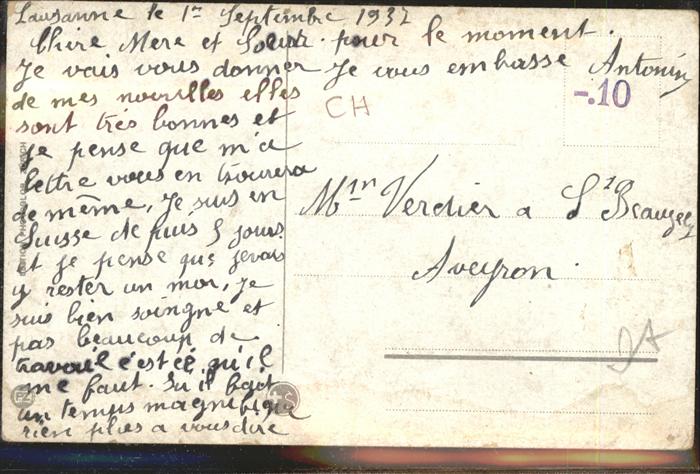 Lausanne le 1er Septembre 1937
Chère Mere et Soeur
Je vais vous donner
de mes nouvelles elles
sont très bonnes et
je pense que m'a
lettre vous en trouvera
de même, Je suis en
Suisse depuis 5 jours
et je pense que j'evais
y rester un moi, je
suis bien soingné et
pas beaucoup de
travail c'est cé qu'il
me faut. Su il fait
un temps magnifique
rien plus a vous dire
pour le moment.
Je vous embasse Antonin
CH
-.10
Mme Verdier a St Beauzely
Aveyron.